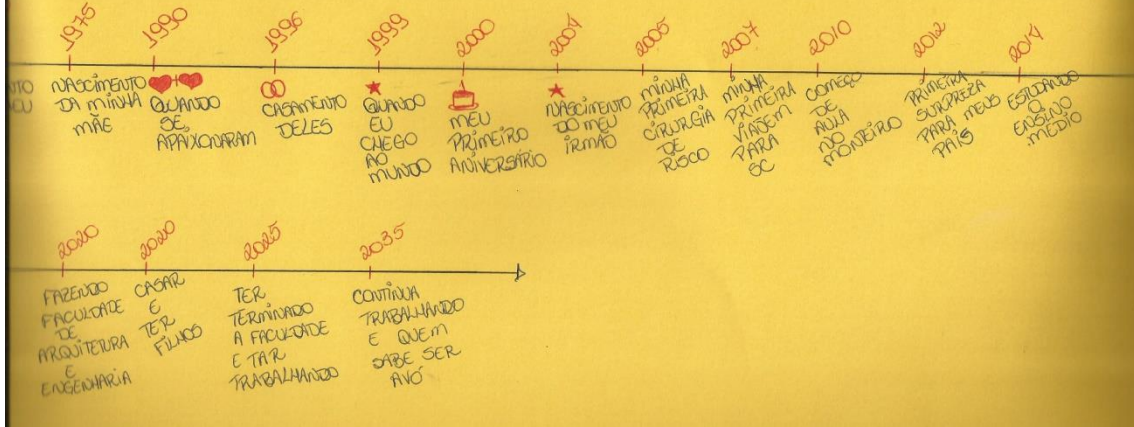 1975
NASCIMENTO
DA MINHA
MÃE
1990
QUANDO
SE
APAIXONARAM
1996
CASAMENTO
DELES
1999
QUANDO
EU
CHEGO
AO
MUNDO
2000
MEU
PRIMEIRO
ANIVERSÁRIO
2004
NASCIMENTO
DO MEU
IRMÃO
2005
MINHA
PRIMEIRA
CIRURGIA
DE
RISCO
2007
MINHA
PRIMEIRA
VIAGEM
PARA
SC
2010
COMEÇO
DE
AULA
NO
MONTEIRO
2012
PRIMEIRA
SURPREZA
PARA MEUS
PAIS
2014
ESTUDANDO
O
ENSINO
MÉDIO
2020
FAZENDO
FACULDADE
DE
ARQUITETURA
E
ENGENHARIA
2020
CASAR
E
TER
FILHOS
2025
TER
TERMINADO
A FACULDADE
E TAR
TRABALHANDO
2035
CONTINUA
TRABALHANDO
E QUEM
SABE SER
AVÓ